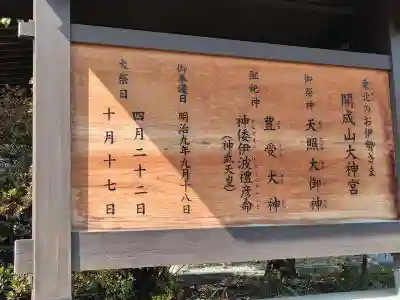 東北のお伊勢さま
開成山大神宮
御祭神
天照大御神
豊受大神
配祀神
神倭伊波禮彦命
(神武天皇)
御奉遷日
明治九年九月十八日
大祭日
四月二十二日
十月十七日